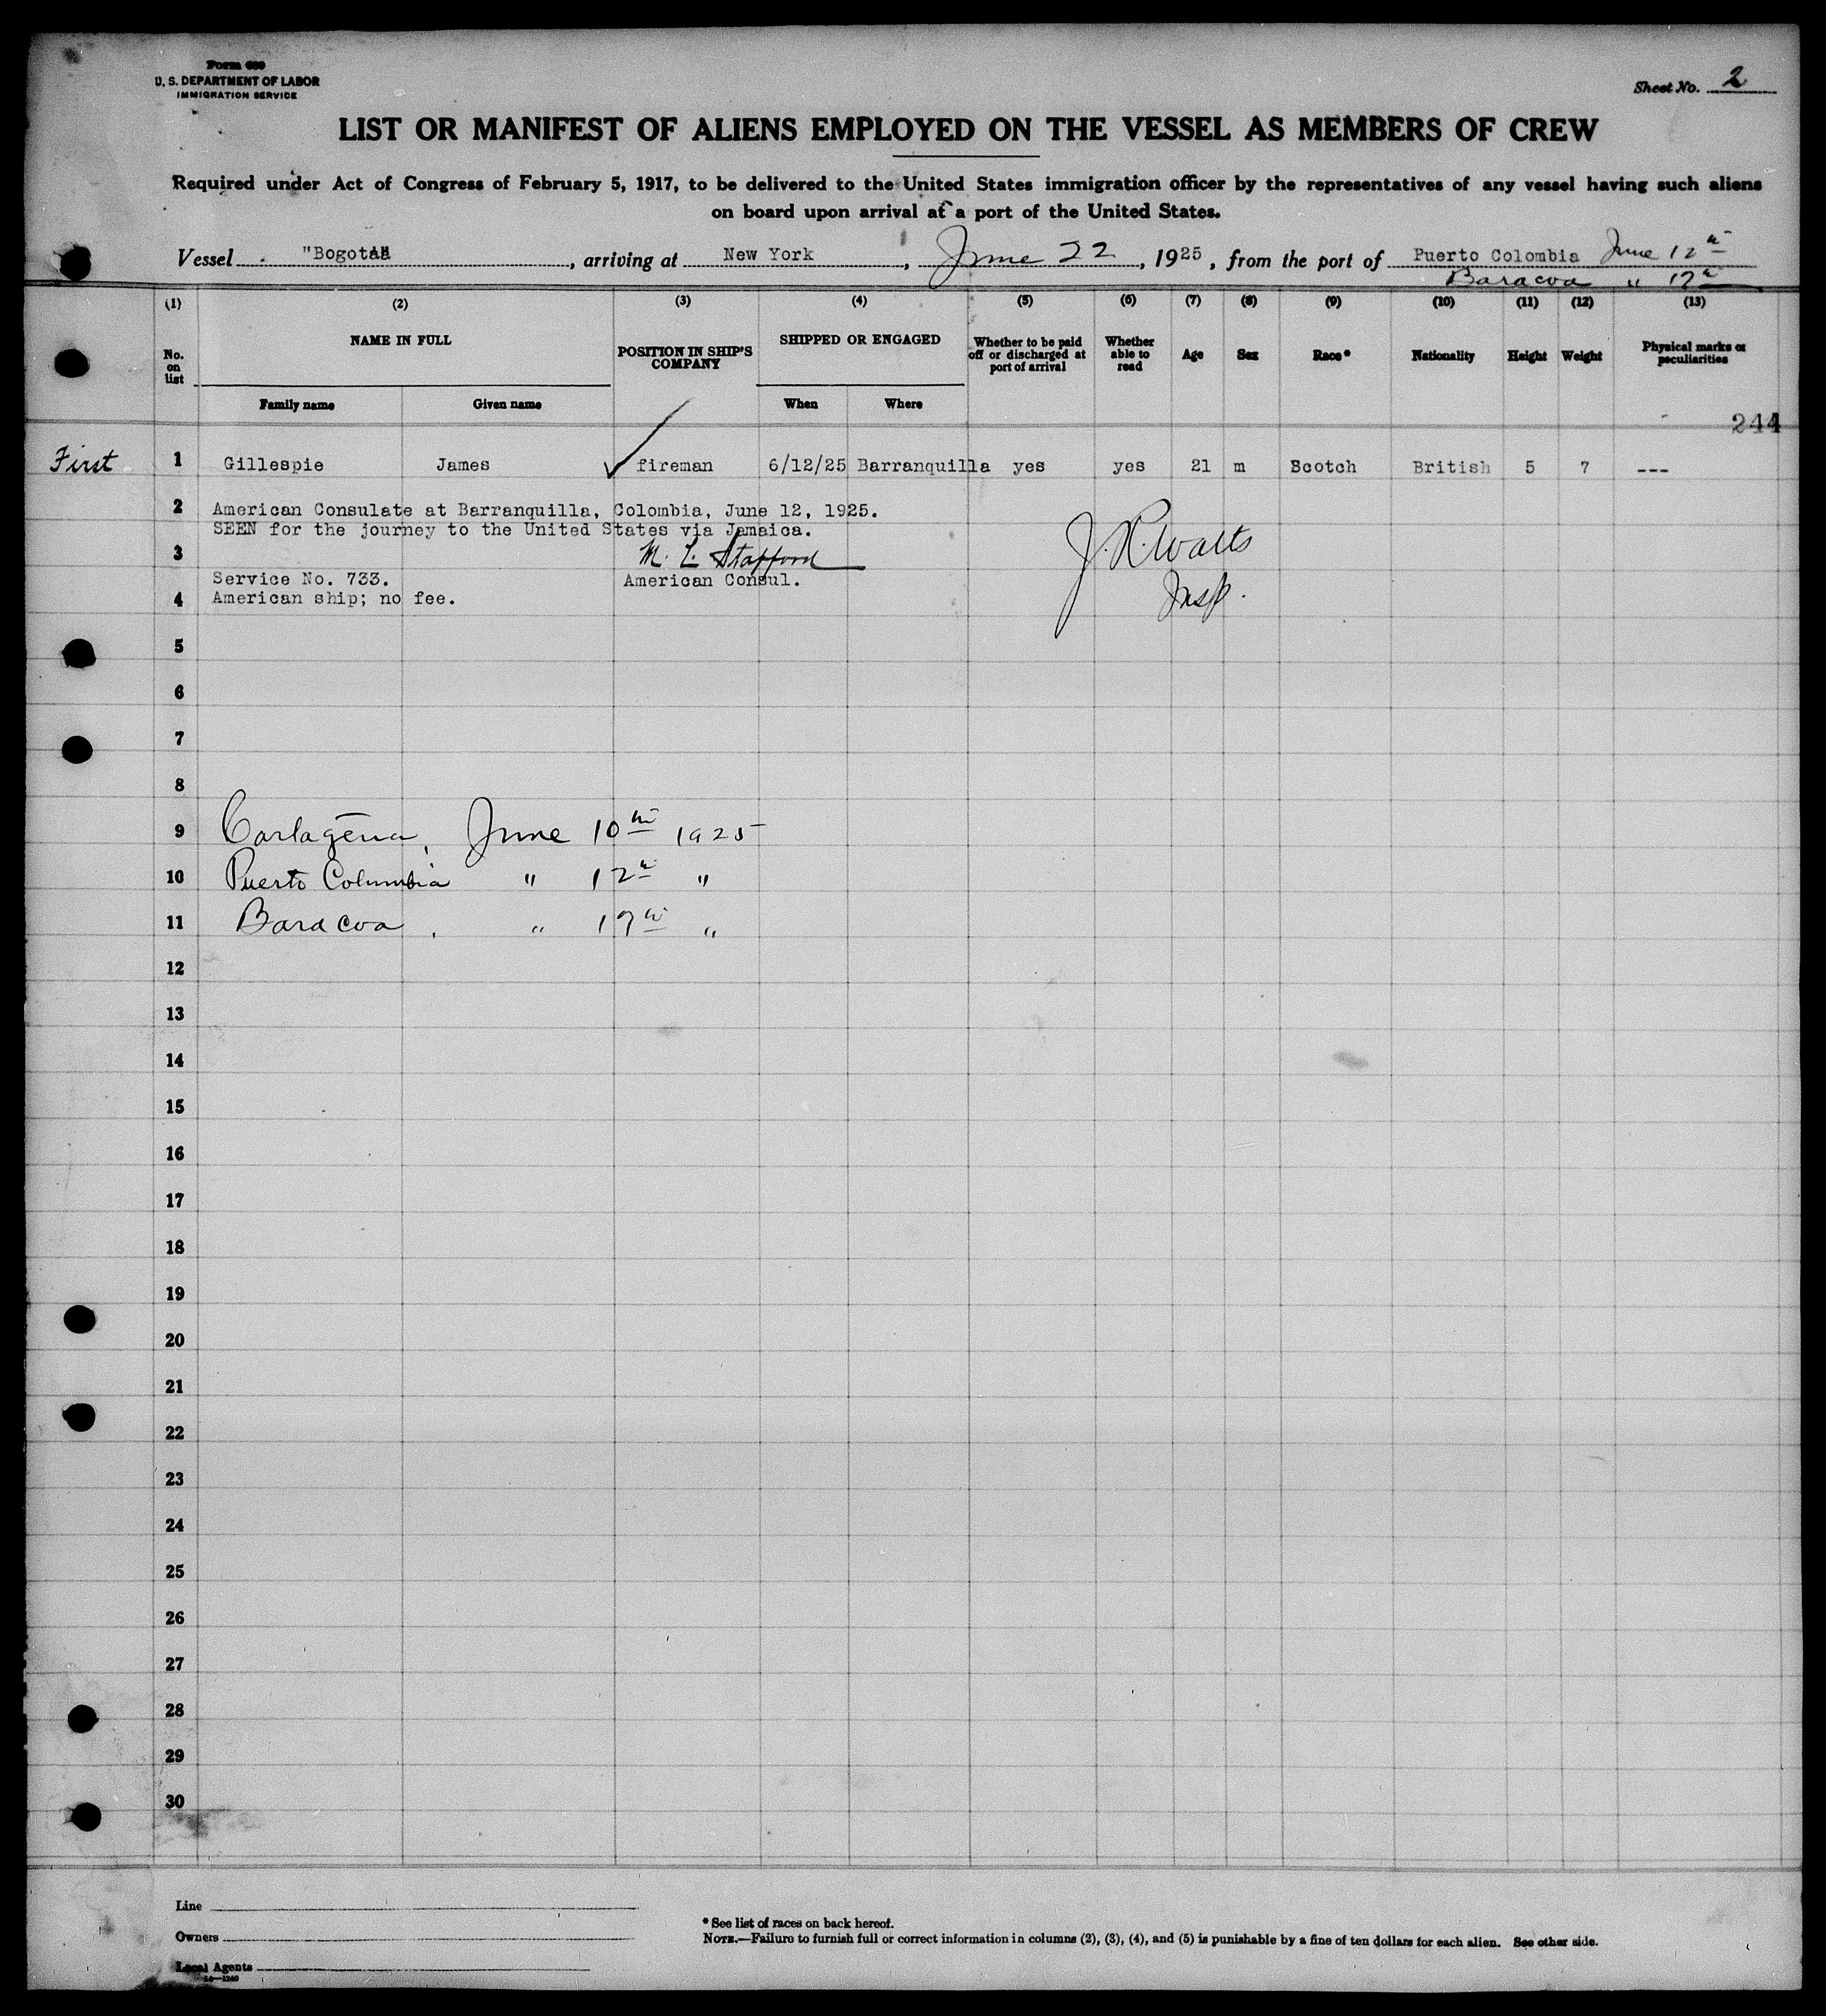 Form 689
U. S. DEPARTMENT OF LABOR
IMMIGRATION SERVICE
Sheet No. 2
LIST OR MANIFEST OF ALIENS EMPLOYED ON THE VESSEL AS MEMBERS OF CREW
Required under Act of Congress of February 5, 1917, to be delivered to the United States immigration officer by the representatives of any vessel having such aliens
on board upon arrival at a port of the United States.
Vessel "Bogota", arriving at New York, June 22, 1925, from the port of Puerto Colombia June 12th
Baracoa " 17th
(1) (2) (3) (4) (5) (6) (7) (8) (9) (10) (11) (12) (13)
No. on list NAME IN FULL POSITION IN SHIP'S COMPANY SHIPPED OR ENGAGED Whether to be paid off or discharged at port of arrival Whether able to read Age Sex Race* Nationality Height Weight Physical marks or peculiarities
Family name Given name When Where
244
First 1 Gillespie James fireman 6/12/25 Barranquilla yes yes 21 m Scotch British 5 7 ---
2 American Consulate at Barranquilla, Colombia, June 12, 1925.
SEEN for the journey to the United States via Jamaica.
3 M. L. Stafford J. R. Walts
Service No. 733. American Consul. Insp.
4 American ship; no fee.
5
6
7
8
9 Cartagena, June 10th 1925
10 Puerto Columbia " 12th "
11 Baracoa, " 17th "
12
13
14
15
16
17
18
19
20
21
22
23
24
25
26
27
28
29
30
Line
Owners
Local Agents
* See list of races on back hereof.
NOTE.—Failure to furnish full or correct information in columns (2), (3), (4), and (5) is punishable by a fine of ten dollars for each alien. See other side.